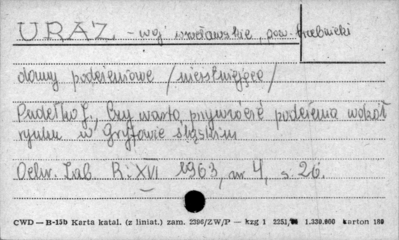 URAZ - woj wrocławskie, pow. trzebnicki
domy podcieniowe /nieistniejące/
Pudełko J., Czy warto przywrócić podcienia wokół
rynku w Gryfowie Śląskim
Ochr. Zab. R: XVI 1963, nr 4, s 26.
CWD — B-15b Karta katal. (z liniat.) zam. 2396/ZW/P — kzg 1 2251/ 1.330.000 karton 180